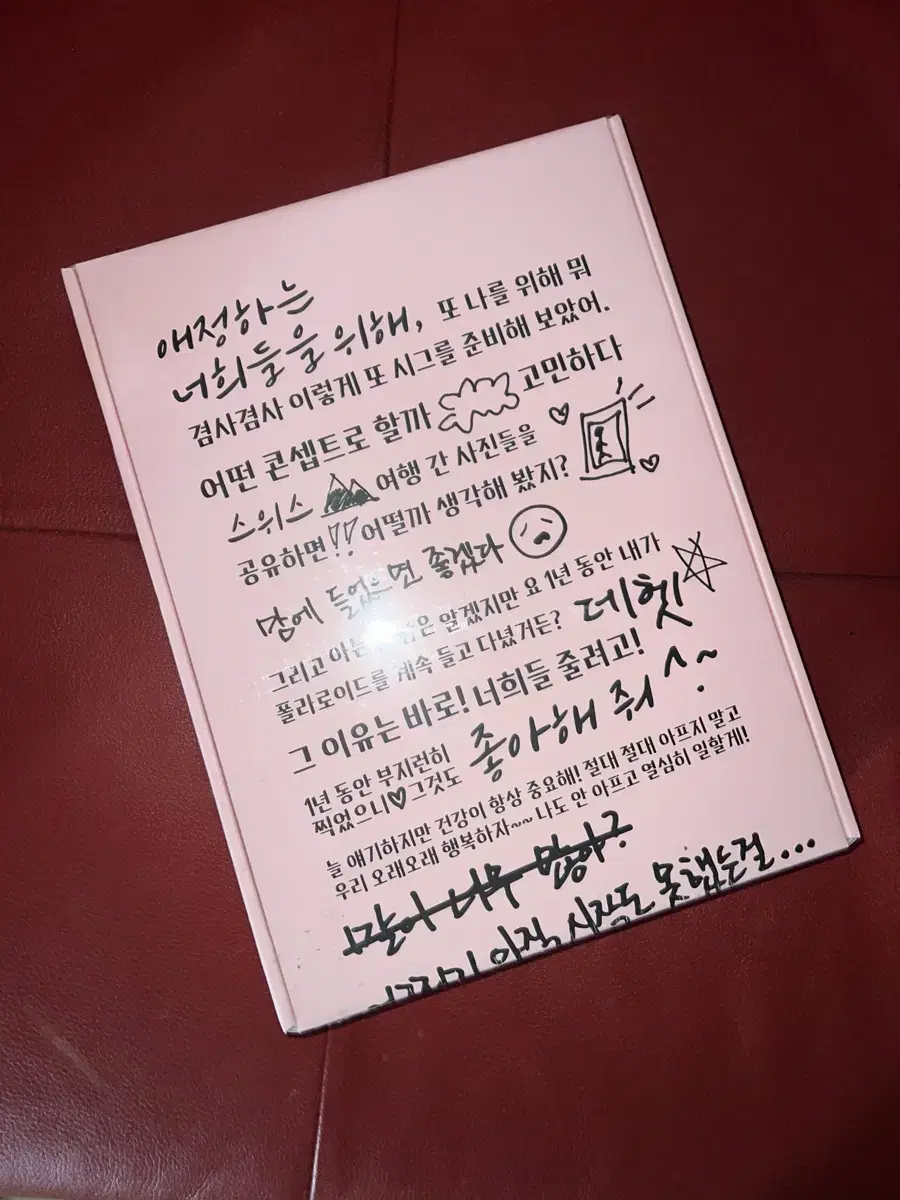 애정하는
너희들을 위해, 또 나를 위해 뭐
겸사겸사 이렇게 또 시그를 준비해 보았어.
어떤 콘셉트로 할까 고민하다
스위스 여행 간 사진들을
공유하면!! 어떨까 생각해 봤지?
맘에 들었으면 좋겠다
그리고 아는 은 알겠지만 요 1년 동안 내가
폴라로이드를 계속 들고 다녔거든? 데헷
그 이유는 바로! 너희들 줄려고!
1년 동안 부지런히
찍었으니♡그것도 좋아해 줘^~
늘 얘기하지만 건강이 항상 중요해! 절대 절대 아프지 말고
우리 오래오래 행복하자~~ 나도 안 아프고 열심히 일할게!
말이 너무 많아?
아직 시작도 못했는걸...